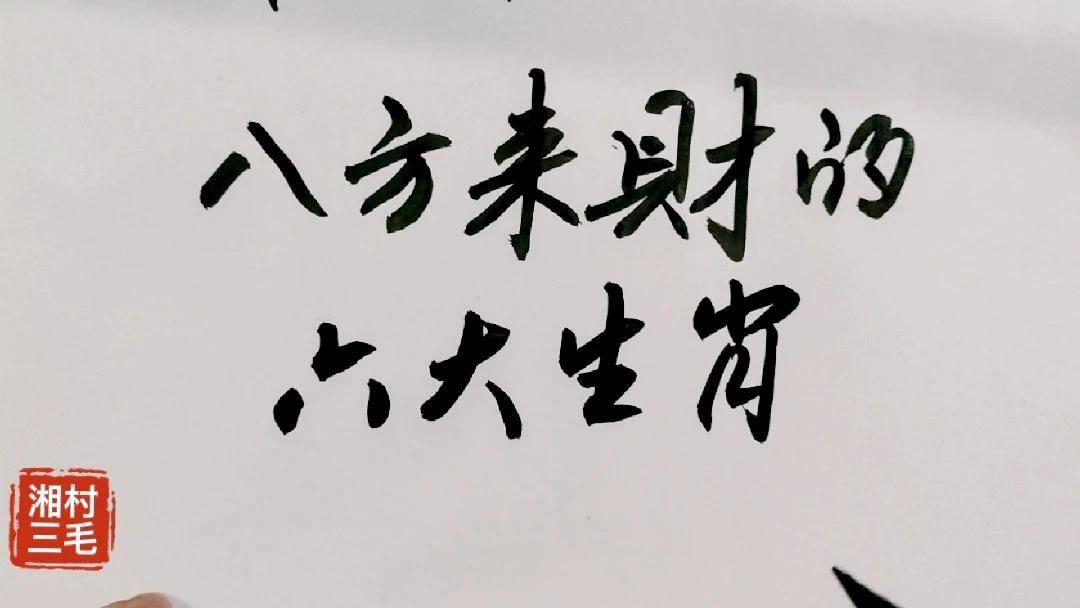 八方来財的
六大生肖
湘村
三毛